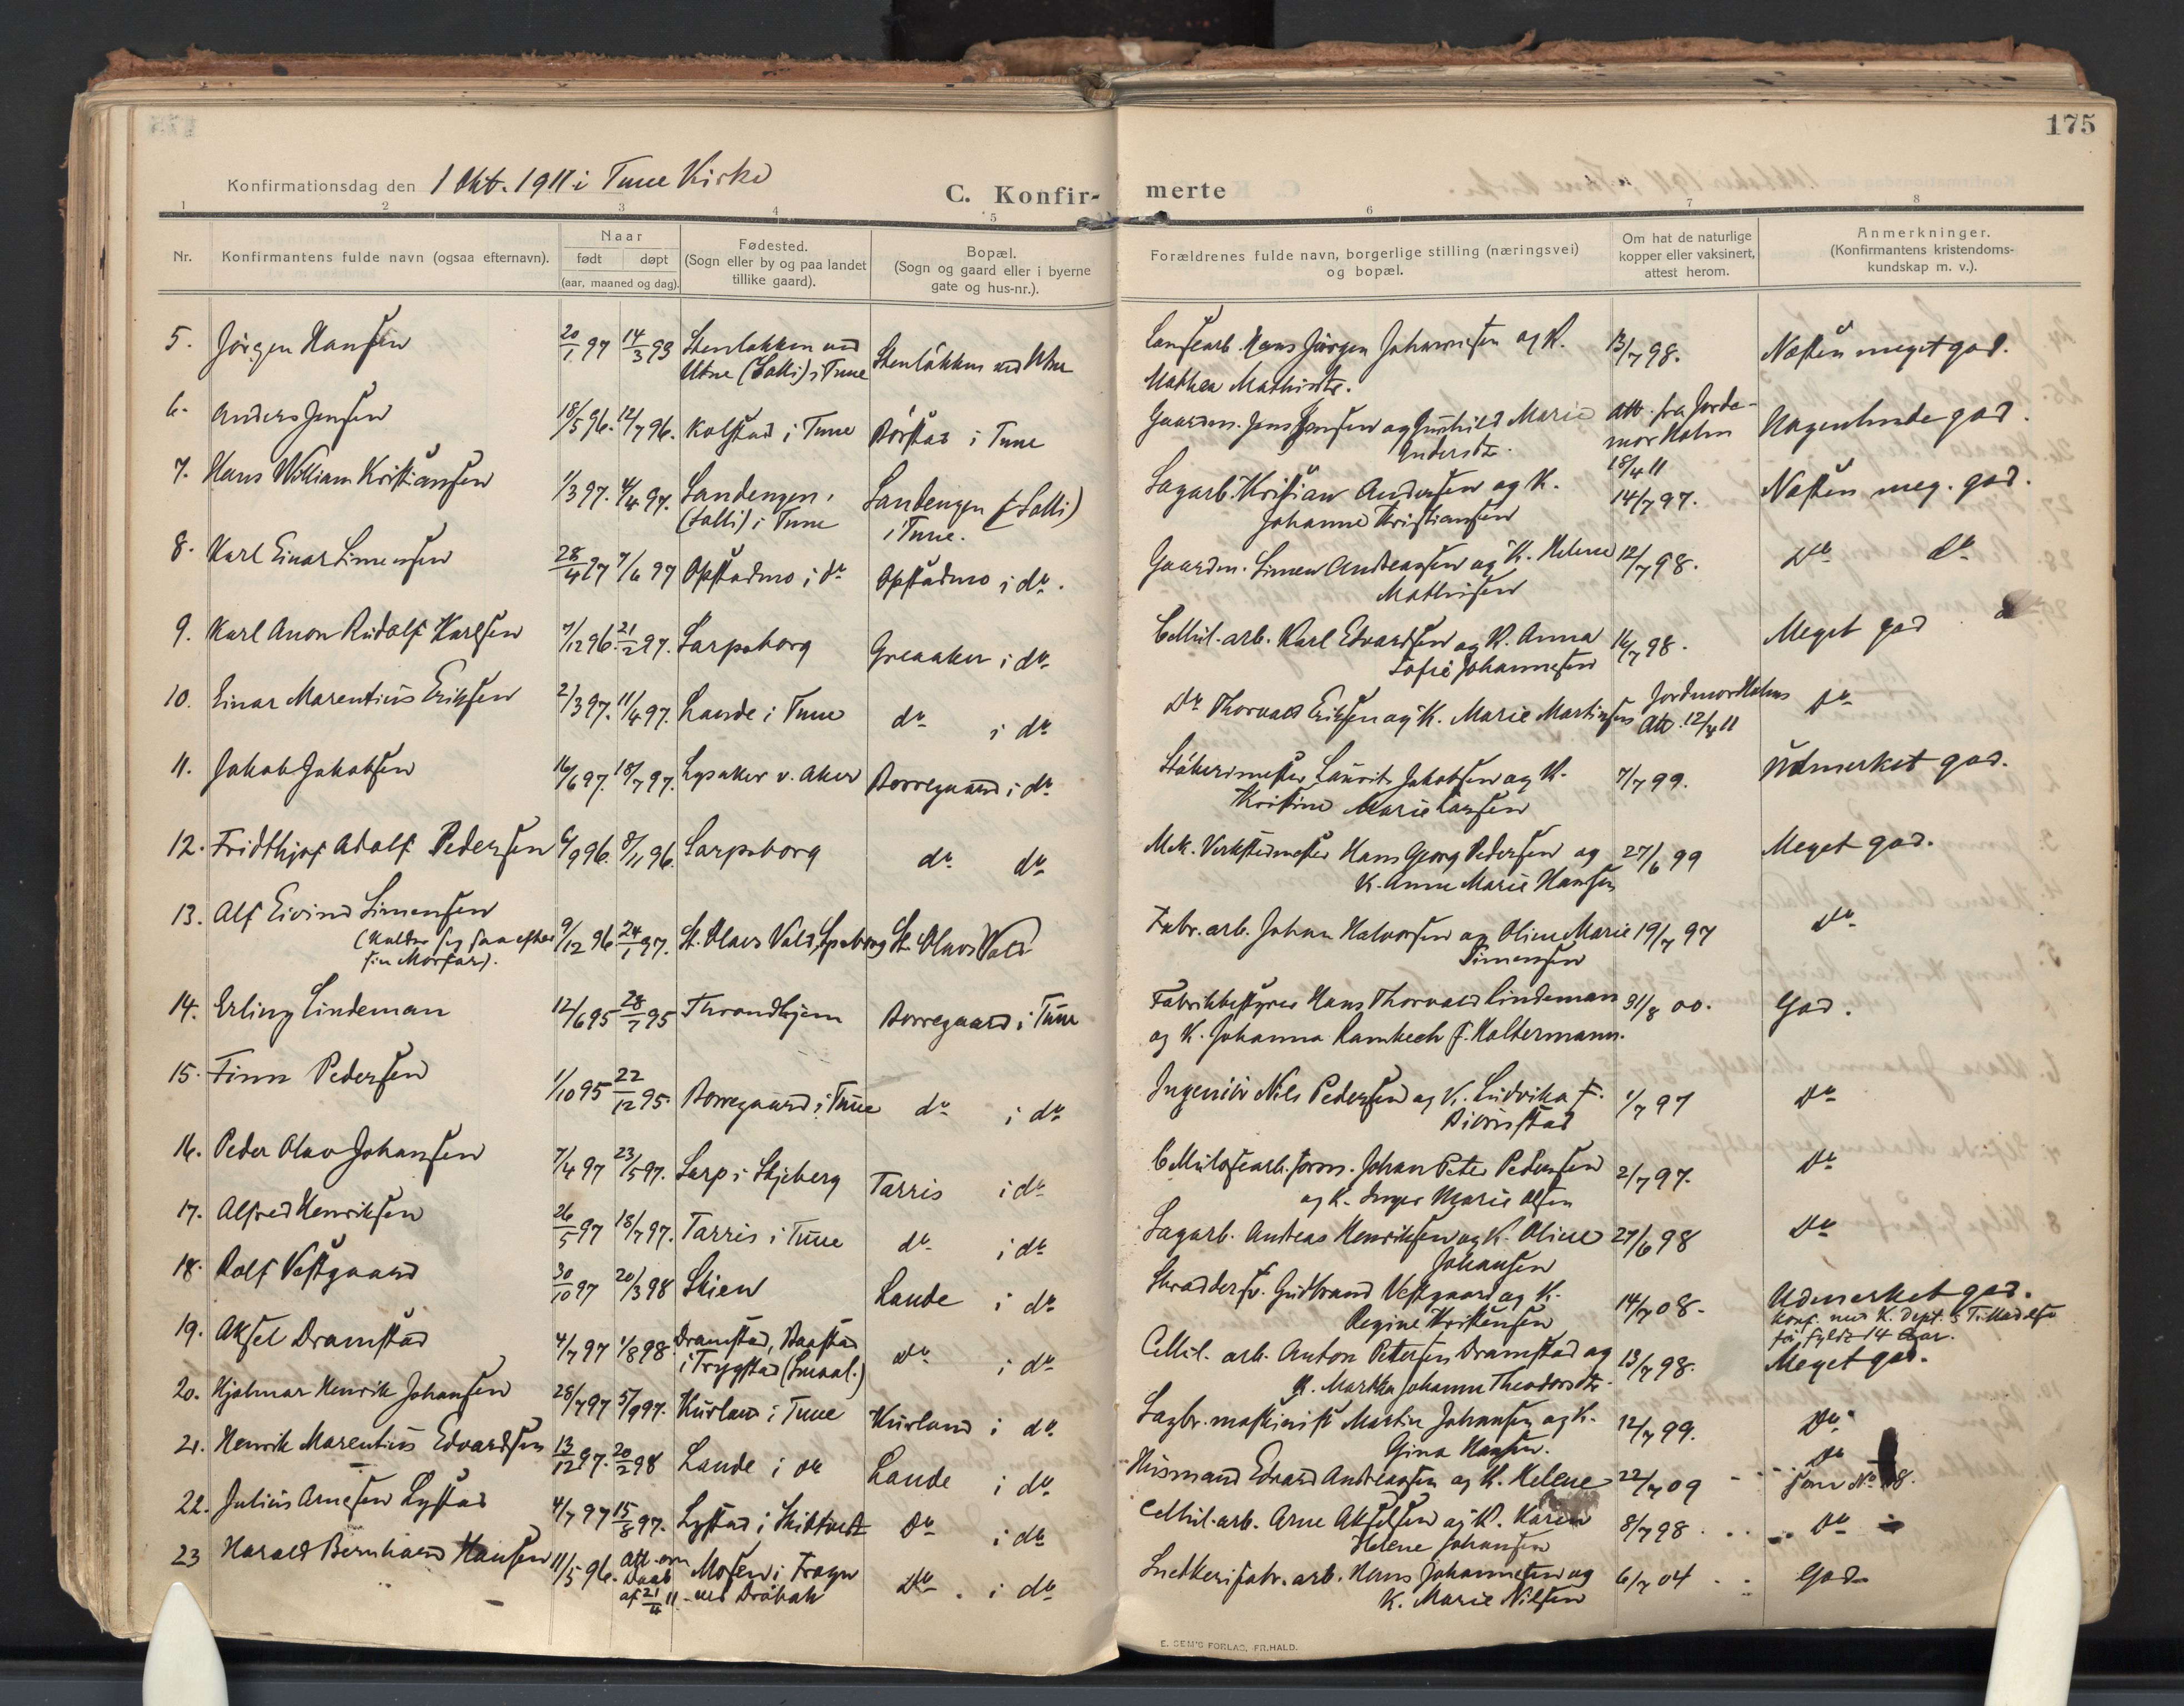 175
Konfirmationsdag den 1 Okt. 1911 i Tune Kirke
C. Konfir- merte
1 2 3 4 5 6 7 8
Nr. Konfirmantens fulde navn (ogsaa efternavn).
Naar
født døpt
(aar, maaned og dag).
Fødested.
(Sogn eller by og paa landet
tillike gaard).
Bopæl.
(Sogn og gaard eller i byerne
gate og hus-nr.).
Forældrenes fulde navn, borgerlige stilling (næringsvei)
og bopæl.
Om hat de naturlige
kopper eller vaksinert,
attest herom.
Anmerkninger.
(Konfirmantens kristendoms-
kundskap m. v.).
5. Jörgen Hansen 20/1 97 14/3 93 Stenløkken ved Stenløkken ved Utne Hans Jørgen Johannesen og K. 13/7 98. Næsten meget god.
Utne (Solli) i Tune Mathea Mathisdtr.
6. Anders Jensen 18/5 96. 12/7 96. Kolstad i Tune Börstad i Tune Gaardm. Jens Jensen og Gunhild Marie Att. fra Jorde- Nogenlunde god.
Andersdtr. mor Holm
18/4 11
7. Hans William Kristiansen 1/3 97. 4/4 97. Sandengen, Sandengen (Solli) Sagarb. Kristian Andersen og K. 14/7 97. Næsten meg. god.
(Solli) i Tune i Tune. Johanne Kristiansen
8. Karl Einar Simensen 28/4 97 7/6 97 Opstadmo i do Opstadmo i do. Gaardm. Simen Andreassen og K. Helene 12/7 98. Do do
Mathisen
9. Karl Anon Rudolf Karlsen 7/12 96. 21/2 97. Sarpsborg Greaaker i do Cellul. arb. Karl Edvardsen og K. Anna 16/7 98. Meget god
Sofie Johannesen
10. Einar Marentius Eriksen 2/3 97. 11/4 97. Lande i Tune do i do Do Thorvald Eriksen og K. Marie Martinsen Jordmor Holms Do
Att. 12/4 11
11. Jakob Jakobsen 16/6 97. 18/7 97. Lysaker v. Aker Borregaard i do Støberimester Laurits Jakobsen og K. 7/7 99. Udmerket god.
Kristine Marie Larsen
12. Fridthjof Adolf Pedersen 6/9 96. 8/11 96. Sarpsborg do do Mek. Verkstedmester Hans Georg Pedersen og 27/6 99 Meget god.
K. Anne Marie Hansen
13. Alf Eivind Simensen 9/12 96 24/1 97. St. Olavs Vold, Spsborg St. Olavs Vold Fabr. arb. Johan Halvorsen og Oline Marie 19/7 97 Do
(kalder sig saa efter Simensen
sin Morfar).
14. Erling Lindeman 12/6 95 28/7 95 Throndhjem Borregaard i Tune Fabrikbestyrer Hans Thorvald Lindeman 31/8 00. God.
og K. Johanna Rambech f. Haltermann.
15. Finn Pedersen 1/10 95 22/12 95. Borregaard i Tune do i do Ingeniör Nils Pedersen og K. Ludvika f. 1/7 97 Do
Björnstad
16. Peder Olav Johansen 7/4 97 23/5 97. Sarp i Skjeberg Tarris i do Cellulosearb. form. Johan Peter Pedersen 2/7 97. Do
og K. Inger Marie Olsen
17. Alfred Henriksen 26/5 97 18/7 97. Tarris i Tune do i do Sagarb. Andreas Henriksen og K. Oline 27/6 98 Do
Johansen
18. Rolf Vestgaard 30/10 97 20/3 98 Skien Lande i do Skrædder Gudbrand Vestgaard og K. 14/7 08. Udmerket god.
Regine Kristensen Konf. med K. dept.s Tilladelse
før fyldt 14 Aar.
19. Aksel Dramstad 4/7 97 1/8 98. Dramstad, Baastad do i do Cellul. arb. Anton Petersen Dramstad og 13/7 98. Meget god.
i Trygstad (Smaal.) K. Martha Johanne Theodorsdtr.
20. Hjalmar Henrik Johansen 28/7 97 5/9 97. Kurland i Tune Kurland i do Sagbr. maskinist Martin Johansen og K. 12/7 99. Do
Gina Hansen.
21. Henrik Marentius Edvardsen 13/12 97. 20/2 98 Lande i do Lande i do Husmand Edvard Andreassen og K. Helene 22/7 09 Do
som No 18.
22. Julius Arnesen Lystad 4/7 97 15/8 97. Lystad i Skibtvedt Do i do Cellul. arb. Arne Akselsen og K. Karen 8/7 98 Do
Helene Johansen
23 Harald Bernhard Hansen 11/5 96. Att. om Mosen i Frogn Do i do Snedkerifabr. arb. Hans Johannesen og 6/7 04 God
Daab ved Drøbak K. Marie Nilsen
af 21/4 11
E. SEM'S FORLAG, FR.HALD.